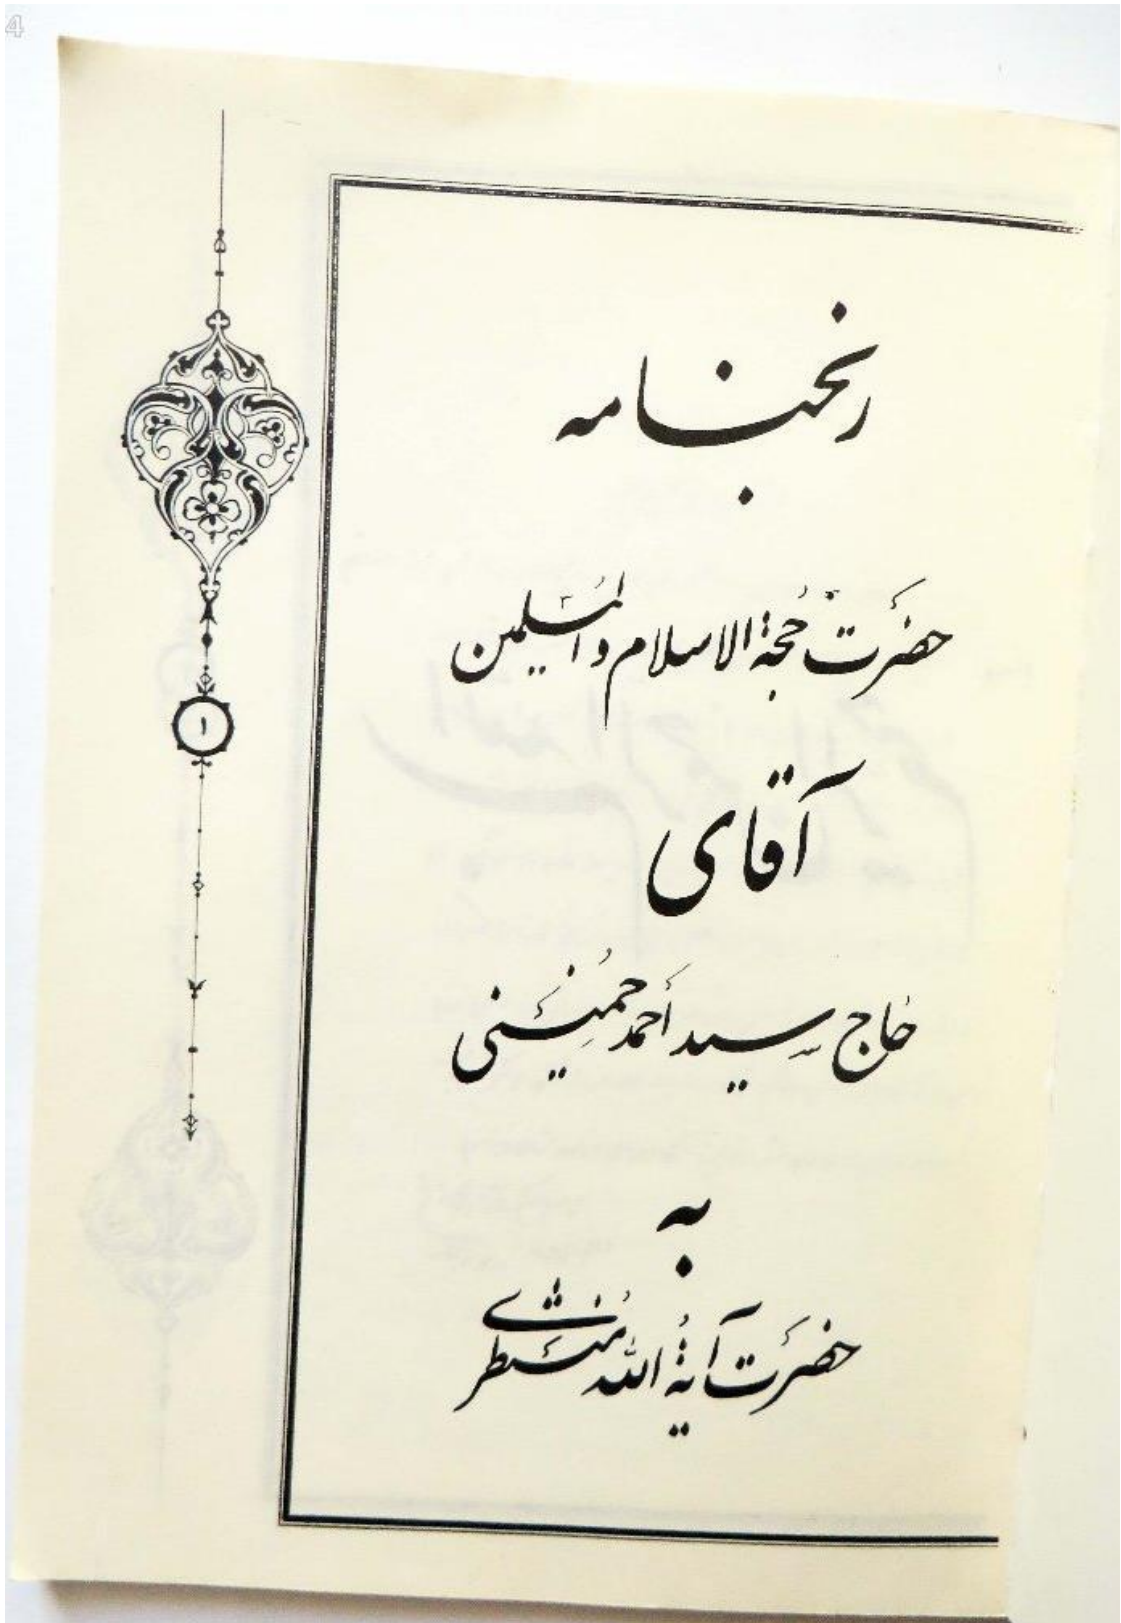 4
رنجنامه
حضرت حُجة الاسلام والمُسلمین
آقای
حاج سید أحمد خُمینی
به
حضرت آیةُ الله مُنتظری
۱